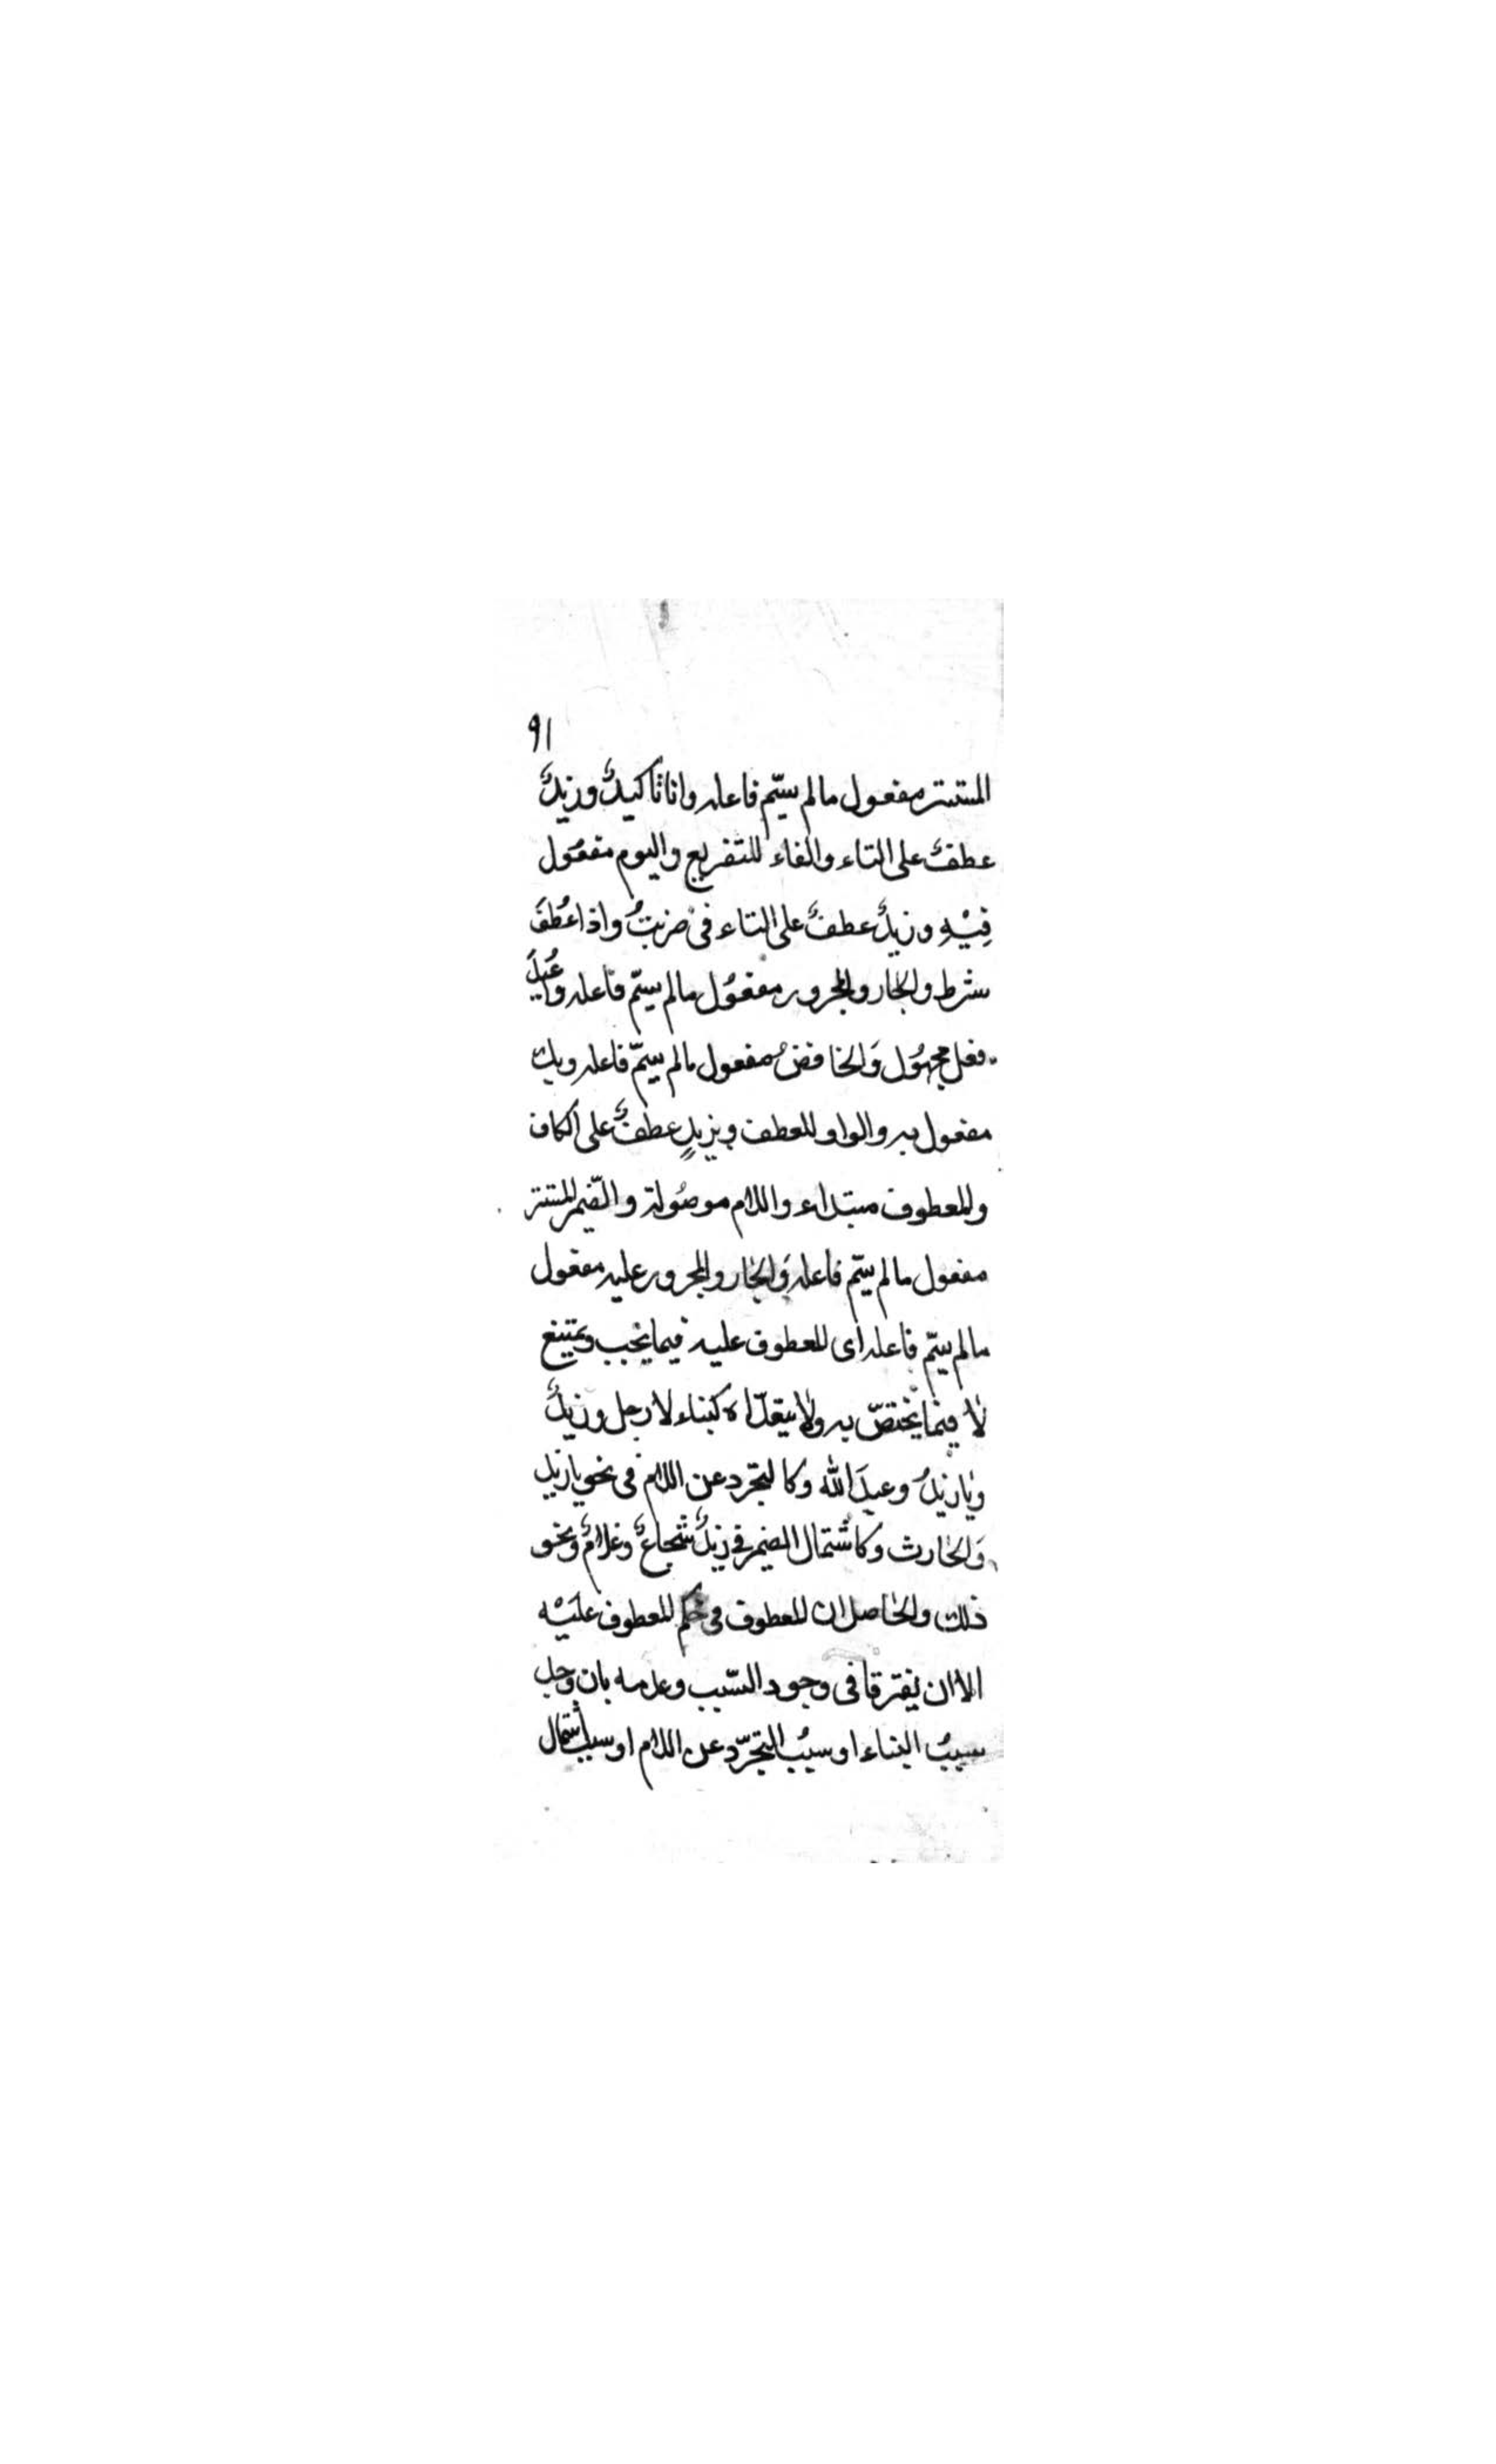 ٩١
المستتر مفعول مالم يسمّ فاعله وانا تأكيدٌ وزيدٌ
عطفٌ على التاء والفاء للتفريع واليوم مفعُول
فِيْهِ وزيدٌ عطفٌ على التاء فى ضربتُ واذا عُطفَ
شرط والجار والمجرور مفعُول مالم يسمّ فاعله واُعِيدَ
فعل مجهُول وَالخافضُ مفعول مالم يسمّ فاعله وبك
مفعول به والواو للعطف وبزيدٍ عطفٌ على الكاف
والمعطوف مبتداء واللام موصُولة والضّمير المستتر
مفعول مالم يسمّ فاعله وَالجار والمجرور عليه مفعول
مالم يسمّ فاعله اى المعطوف عليه فيما يجب ويمتنع
لا فيما يختصّ به ولا يتعدّاه كبناء لا رجل وزيدٌ
ويا زيدُ وعبدَ الله وكالتجرّد عن اللام فى نحو يا زيد
وَالحارث وكاشتمال الضمير فى زيدٌ شجاعٌ وغلامٌ ونحو
ذلك والحاصل ان المعطوف فى حكم المعطوف عليْه
الا ان يفترقا فى وجود السّبب وعدمه بان وجد
سببُ البناء او سببُ التجرّد عن اللام او سبب اشتمال